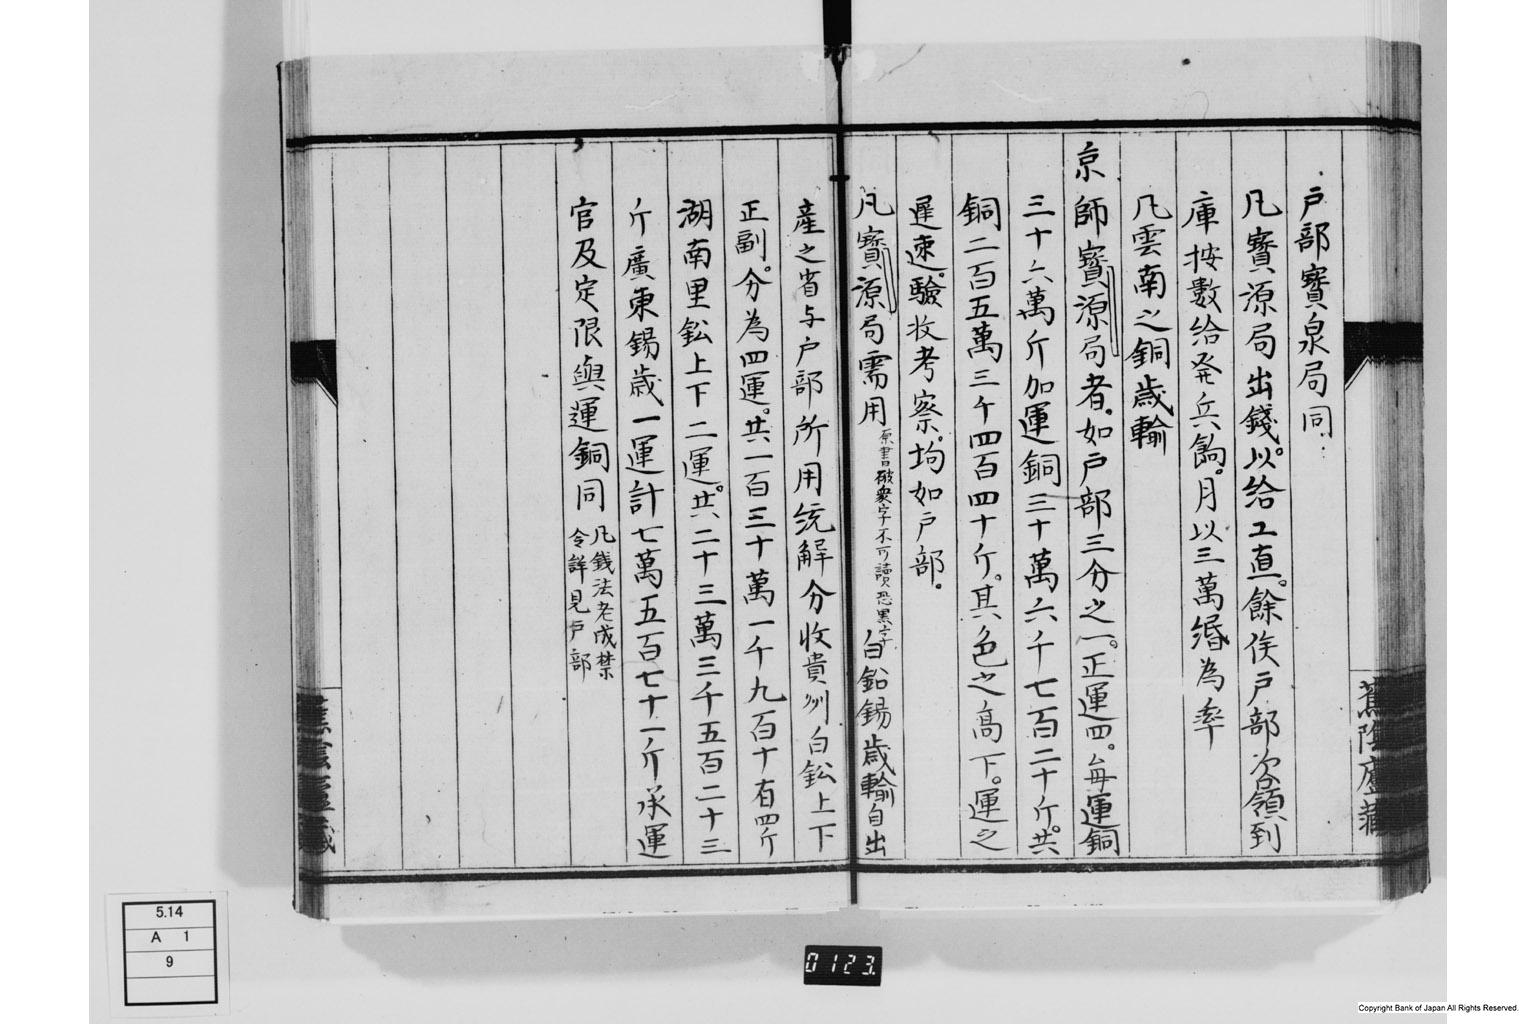 戸部寳泉局同
凡寳源局出錢。以給工直。餘俟戸部咨領到
庫按數給発兵餉。月以三萬緡為率
凡雲南之銅歳輸
京師寳源局者。如戸部三分之一。正運四。每運銅
三十六萬斤加運銅三十萬六千七百二十斤。共
銅二百五萬三千四百四十斤。其色之高下。運之
遲速。驗收考察。均如戸部。
凡寳源局需用原書破衆字不可讀恐黒字白鉛錫歳輸自出
産之省与戸部所用统解分收貴州白鈆上下
正副。分為四運。共一百三十萬一千九百十有四斤
湖南里鈆上下二運。共二十三萬三千五百二十三
斤廣東錫歳一運計七萬五百七十一斤承運
官及定限與運銅同凡錢法老成禁
令詳見戸部
蕉陰廬藏
5.14
A 1
9
0123.
Copyright Bank of Japan All Rights Reserved.